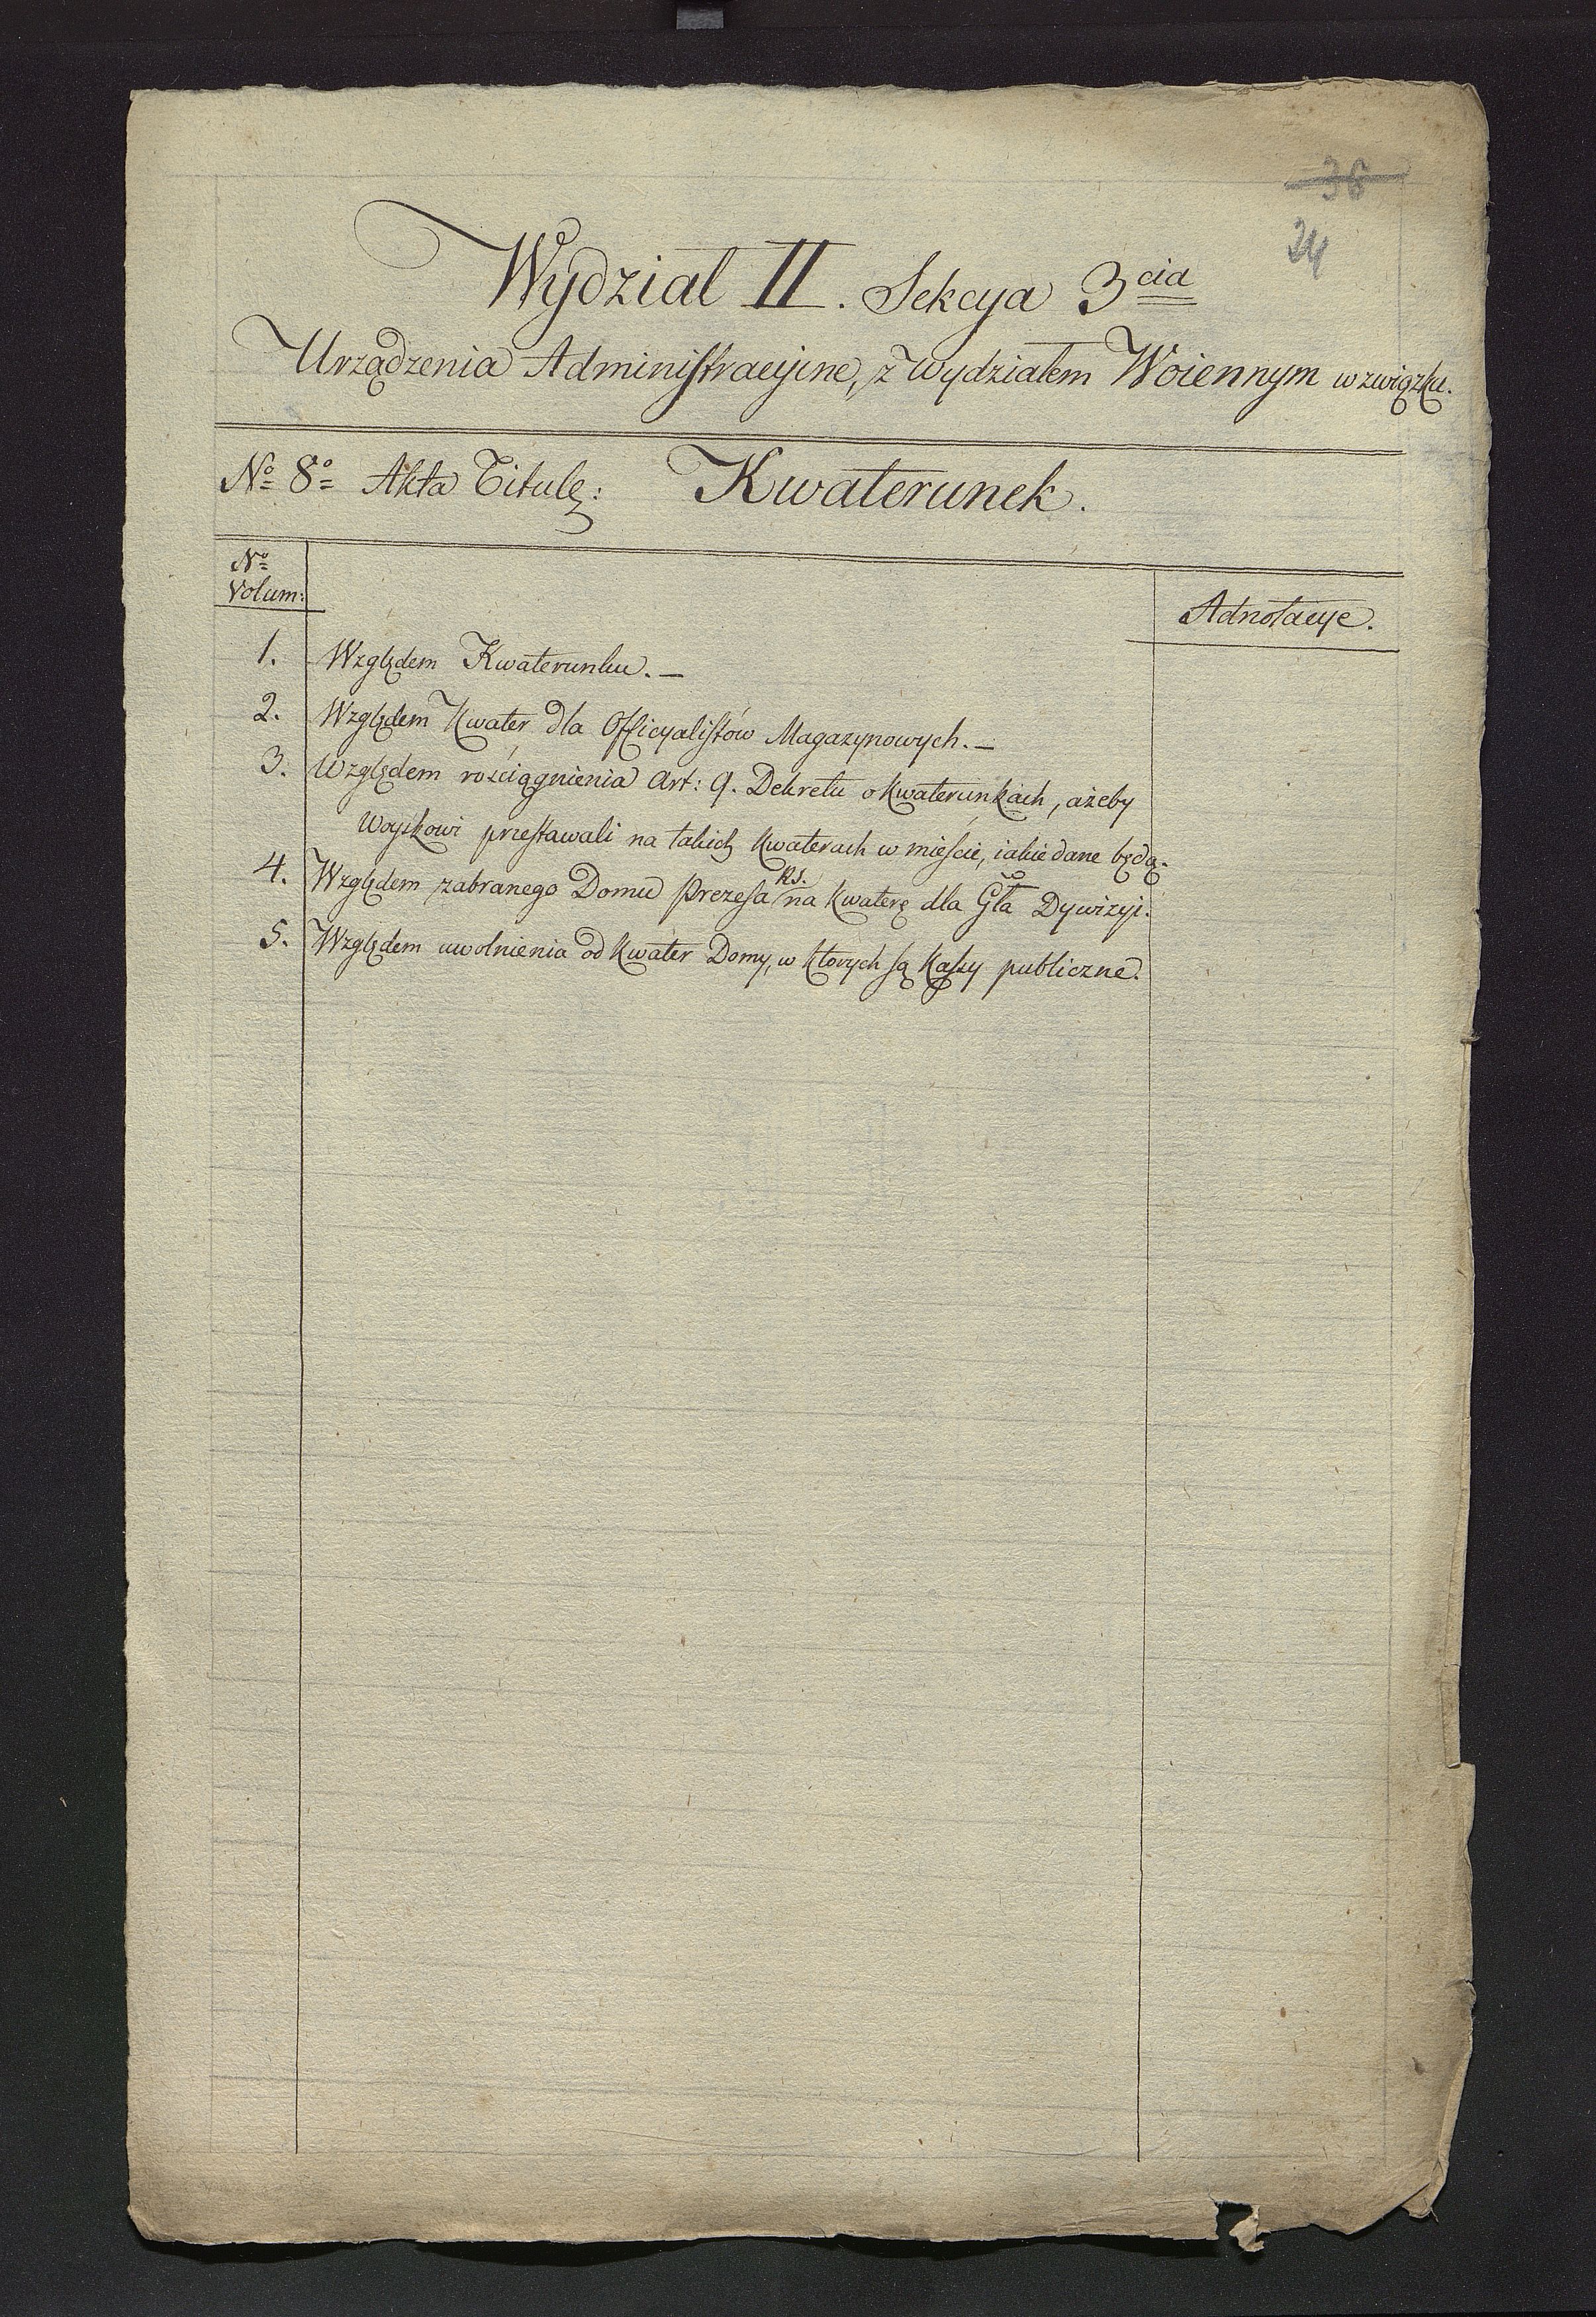 38
24
Wydział II. Sekcya 3cia
Urządzenia Administracyine, z Wydziałem Woiennym w związku.
No 8o Akta Titulę: Kwaterunek.
No
Volum:
Adnotacye.
1. Względem Kwaterunku. —
2. Względem Kwater dla Officyalistów Magazynowych. —
3. Względem rościągnienia Art: 9. Dekretu o Kwaterunkach, ażeby
Woyskowi przestawali na takich Kwaterach w mieście, iakie dane będą.
4. Względem zabranego Domu Prezesa RS. na Kwaterę dla Gła Dywizyi.
5. Względem uwolnienia od Kwater Domy, w ktorych są Kassy publiczne.